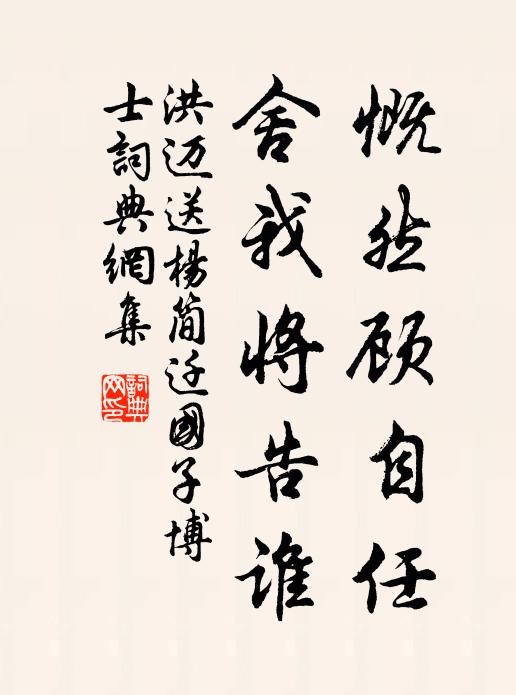 慨然顾自任
舍我将告谁
洪迈送杨简迁國子博
士詞典網集
詞典
网印